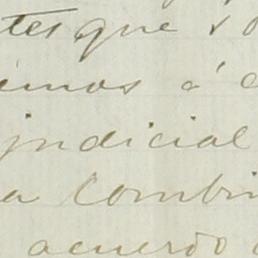 tes que s
emos á
judicial
a combin
acuerdo